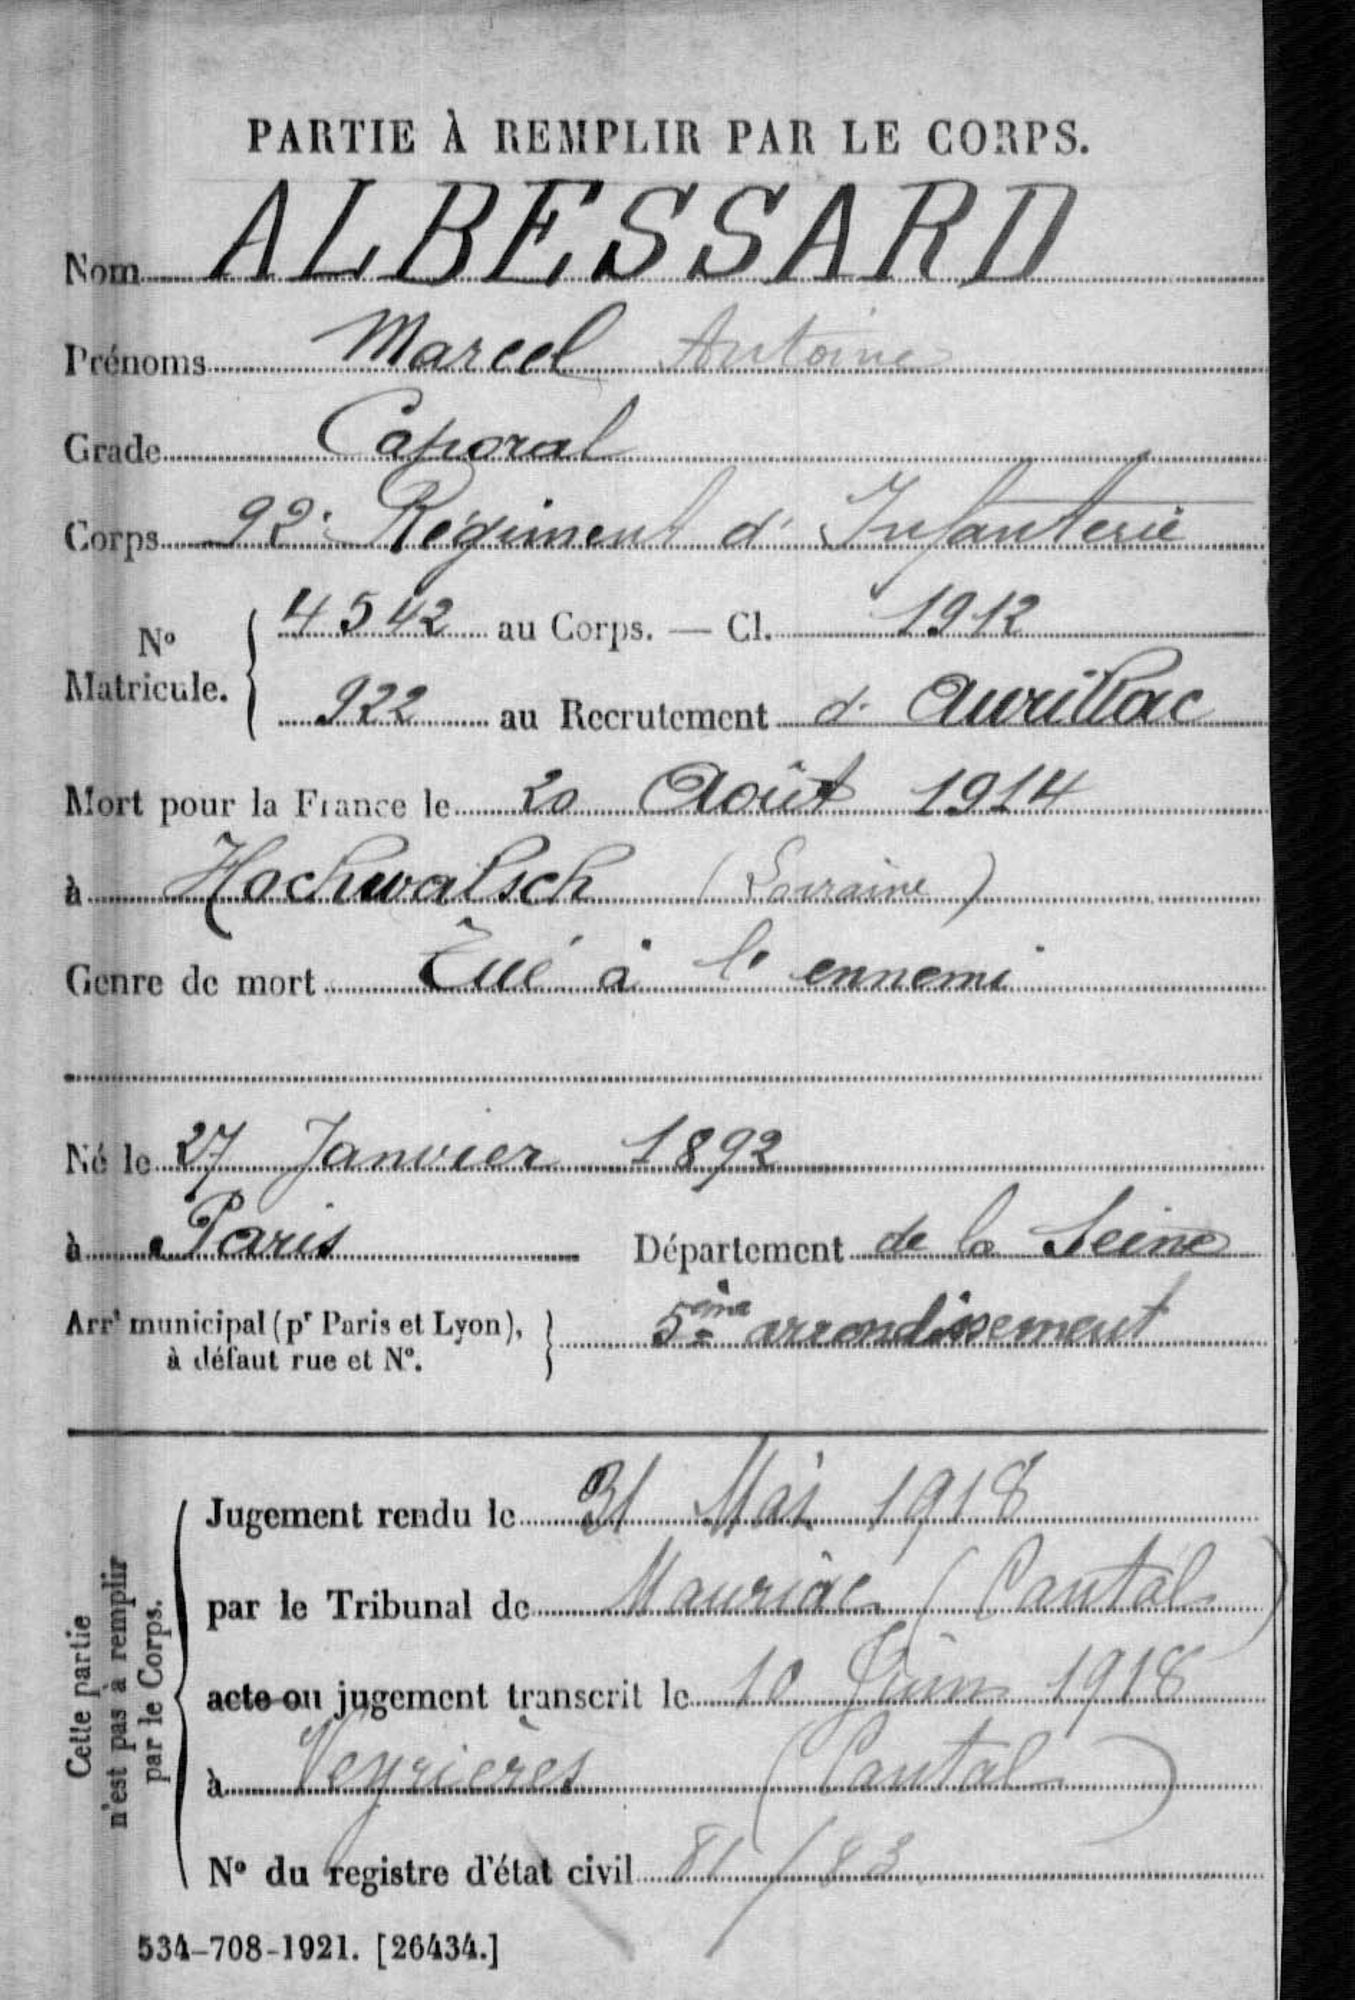 PARTIE À REMPLIR PAR LE CORPS.
Nom ALBESSARD
Prénoms Marcel Antoine
Grade Caporal
Corps 92e Régiment d'Infanterie
N° Matricule. 4542 au Corps. — Cl. 1912
922 au Recrutement d'Aurillac
Mort pour la France le 20 Août 1914
à Hochwalsch (Lorraine)
Genre de mort Tué à l'ennemi
Né le 27 Janvier 1892
à Paris Département de la Seine
Arrt municipal (pr Paris et Lyon), à défaut rue et N°. 5ème arrondissement
Cette partie n'est pas à remplir par le Corps.
Jugement rendu le 31 Mai 1918
par le Tribunal de Mauriac (Cantal)
acte ou jugement transcrit le 10 Juin 1918
à Veyrières (Cantal)
N° du registre d'état civil 81/83
534-708-1921. [26434.]